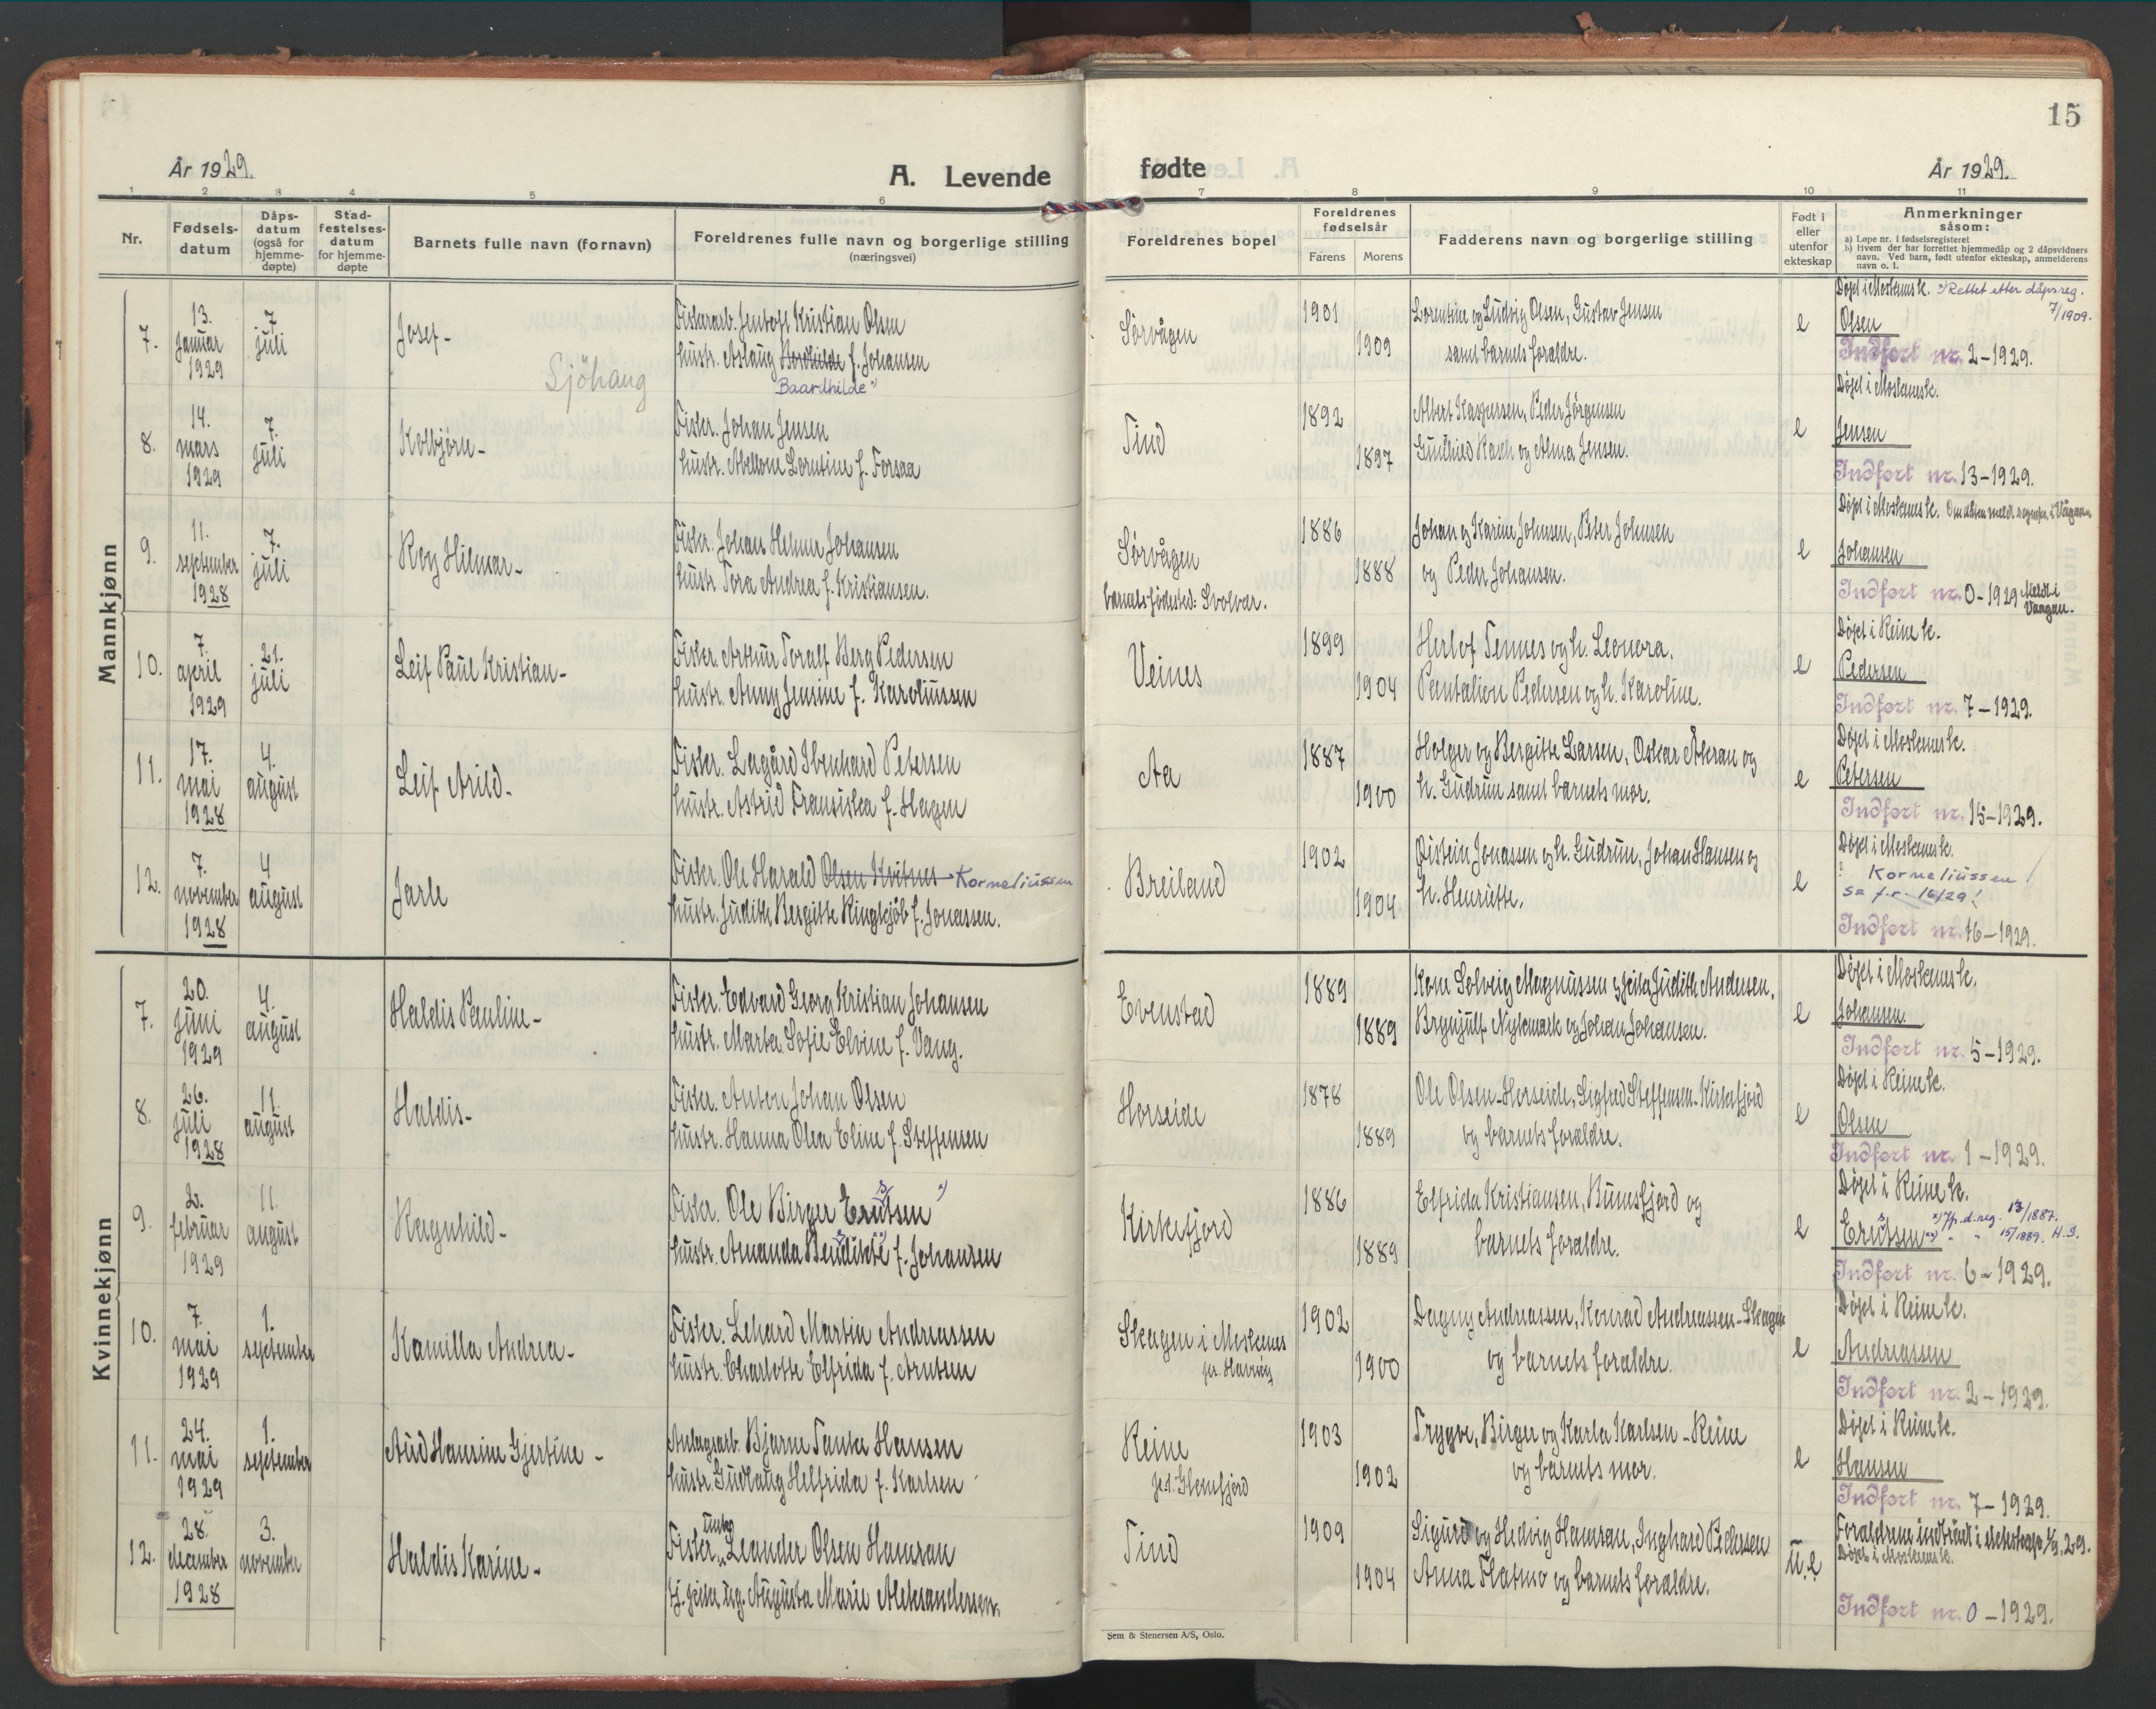 År 1929.
A. Levende
1 2 3 4 5 6
Nr.
Fødselsdatum
Dåpsdatum (også for hjemmedøpte)
Stadfestelsesdatum for hjemmedøpte
Barnets fulle navn (fornavn)
Foreldrenes fulle navn og borgerlige stilling
(næringsvei)
15
fødte
År 1929.
7 8 9 10 11
Foreldrenes bopel
Foreldrenes fødselsår
Farens Morens
Fadderens navn og borgerlige stilling
Født i eller utenfor ekteskap
Anmerkninger
såsom:
a) Løpe nr. i fødselsregisteret
b) Hvem der har forrettet hjemmedåp og 2 dåpsvidners
navn. Ved barn, født utenfor ekteskap, anmelderens
navn o. l.
Mannkjønn
7. 13. januar 1929
7 juli
Josef-
Sjöhaug
Fiskerarb. Jentoft Kristian Olsen
hustr. Aslaug f. Johansen
Baardhilde x)
Sørvågen
1901
1909
Lorentine og Ludvig Olsen, Gustav Jensen
samt barnets foraldre.
e
Døpt i Moskenes k. x) Rettet etter dåpsreg.
7/1909.
Olsen
Indført nr. 2-1929.
8. 14. mars 1929
7. juli
Kolbjørn-
Fisker. Johan Jensen
hustr. Lorentine f. Forsaa
Tind
1892
1897
Albert Kaspersen, Peder Jørgensen
Gunhild Rasch og Alma Jensen.
e
Døpt i Moskenes k.
Jensen
Indført nr. 13-1929.
9. 11. september 1928
7. juli
Roy Hilmar-
Fisker. Johan Helmer Johansen
hustr. Tora Andrea f. Kristiansen.
Sørvågen
barnets fødested: Svolvær.
1886
1888
Johan og Karine Johnsen, Peter Johnsen
og Peder Johansen.
e
Døpt i Moskenes k.
Johansen
Indført nr. 0-1929 Meldt i
Vaagan.
10. 7. april 1929
21. juli
Leif Paul Kristian-
Fisker. Arthur Toralf Berg Pedersen
hustr. Anny Jensine f. Karoliussen
Veines
1899
1904
Herlof Tennes og h. Leonora.
Pantalion Pedersen og h. Karoline.
e
Døpt i Reine k.
Pedersen
Indført nr. 7-1929.
11. 17. mai 1928
4. august
Leif Arild-
Fisker. Lagård Ibenhard Petersen
hustr. Astrid Fransiska f. Hagen
Aa
1887
1900
Holger og Bergitte Larsen, Oskar Åkran og
h. Gudrun samt barnets mor.
e
Døpt i Moskenes k.
Petersen
Indført nr. 15-1929.
12. 7. november 1928
4 august
Jarle
Fisker. Ole Harald Olsen Kvitnes - Korneliussen
hustr. Judith Bergitte Ringkjøb f. Jonassen.
Breiland
1902
1904
Øistein Jonassen og h. Gudrun, Johan Hansen og
h. Henriette.
e
Døpt i Moskenes k.
! Korneliussen
se f.r. 16/29!
Indført nr. 16-1929.
Kvinnekjønn
7. 20. juni 1929
4. august
Haldis Pauline-
Fisker. Edvard Georg Kristian Johansen
hustr. Marta Sofie Elvine f. Vang.
Evenstad
1889
1889
Kone Solveig Magnussen og peika Judith Andersen,
Brynjulf Nykmark og Johan Johansen.
e
Døpt i Moskenes k.
Johansen
Indført nr. 5-1929.
8. 26. juli 1928
11. august
Haldis-
Fisker. Anton Johan Olsen
hustr. Hanna Olea Eline f. Steffensen
Horseide
1878
1889
Ole Olsen-Horseide, Sigfred Steffensen-Kirkefjord
og barnets foraldre.
e
Døpt i Reine k.
Olsen
Indført nr. 1-1929.
9. 2. februar 1929
11. august
Ragnhild-
Fisker. Ole Birger Eritsen x)
hustr. Amanda Bendikte f. Johansen
Kirkefjord
1886
1889
Elfrida Kristiansen, Bunesfjord og
barnets foraldre.
e
Døpt i Reine k.
Eritsen x) Jfr. d. reg. 13/1887.
" " 15/1889. H.S.
Indført nr. 6-1929.
10. 7. mai 1929
1. september
Kamilla Andrea-
Fisker. Lehard Martin Andreassen
hustr. Charlotte Elfrida f. Arntsen
Skagen i Moskenes
1902
1900
Dagny Andreassen, Konrad Andreassen-Skagen
og barnets foraldre.
e
Døpt i Reine k.
Andreassen
Indført nr. 2-1929.
11. 24. mai 1929
1. september
Aud Hansine Gjertine -
Anlagsarb. Bjarne Tanke Hansen
hustr. Gudlaug Helfrida f. Karlsen
Reine
pr. t. Glomfjord
1903
1902
Trygve, Birger og Karla Karlsen - Reine
og barnets mor.
e
Døpt i Reine k.
Hansen
Indført nr. 7-1929.
12. 28. december 1928
3. november
Haldis Karine-
Fisker, ungk. Leander Olsen Hamran
tj. peika, ug. Augusta Marie Aleksandersen.
Tind
1909
1904
Sigurd og Hedvig Hamran, Inghard Pedersen
Anna Flatmo og barnets foraldre.
u.e.
Foraldrene indtrådt i ekteskap 29.
Døpt i Moskenes k.
Indført nr. 0-1929.
Sem & Stenersen A/S, Oslo.